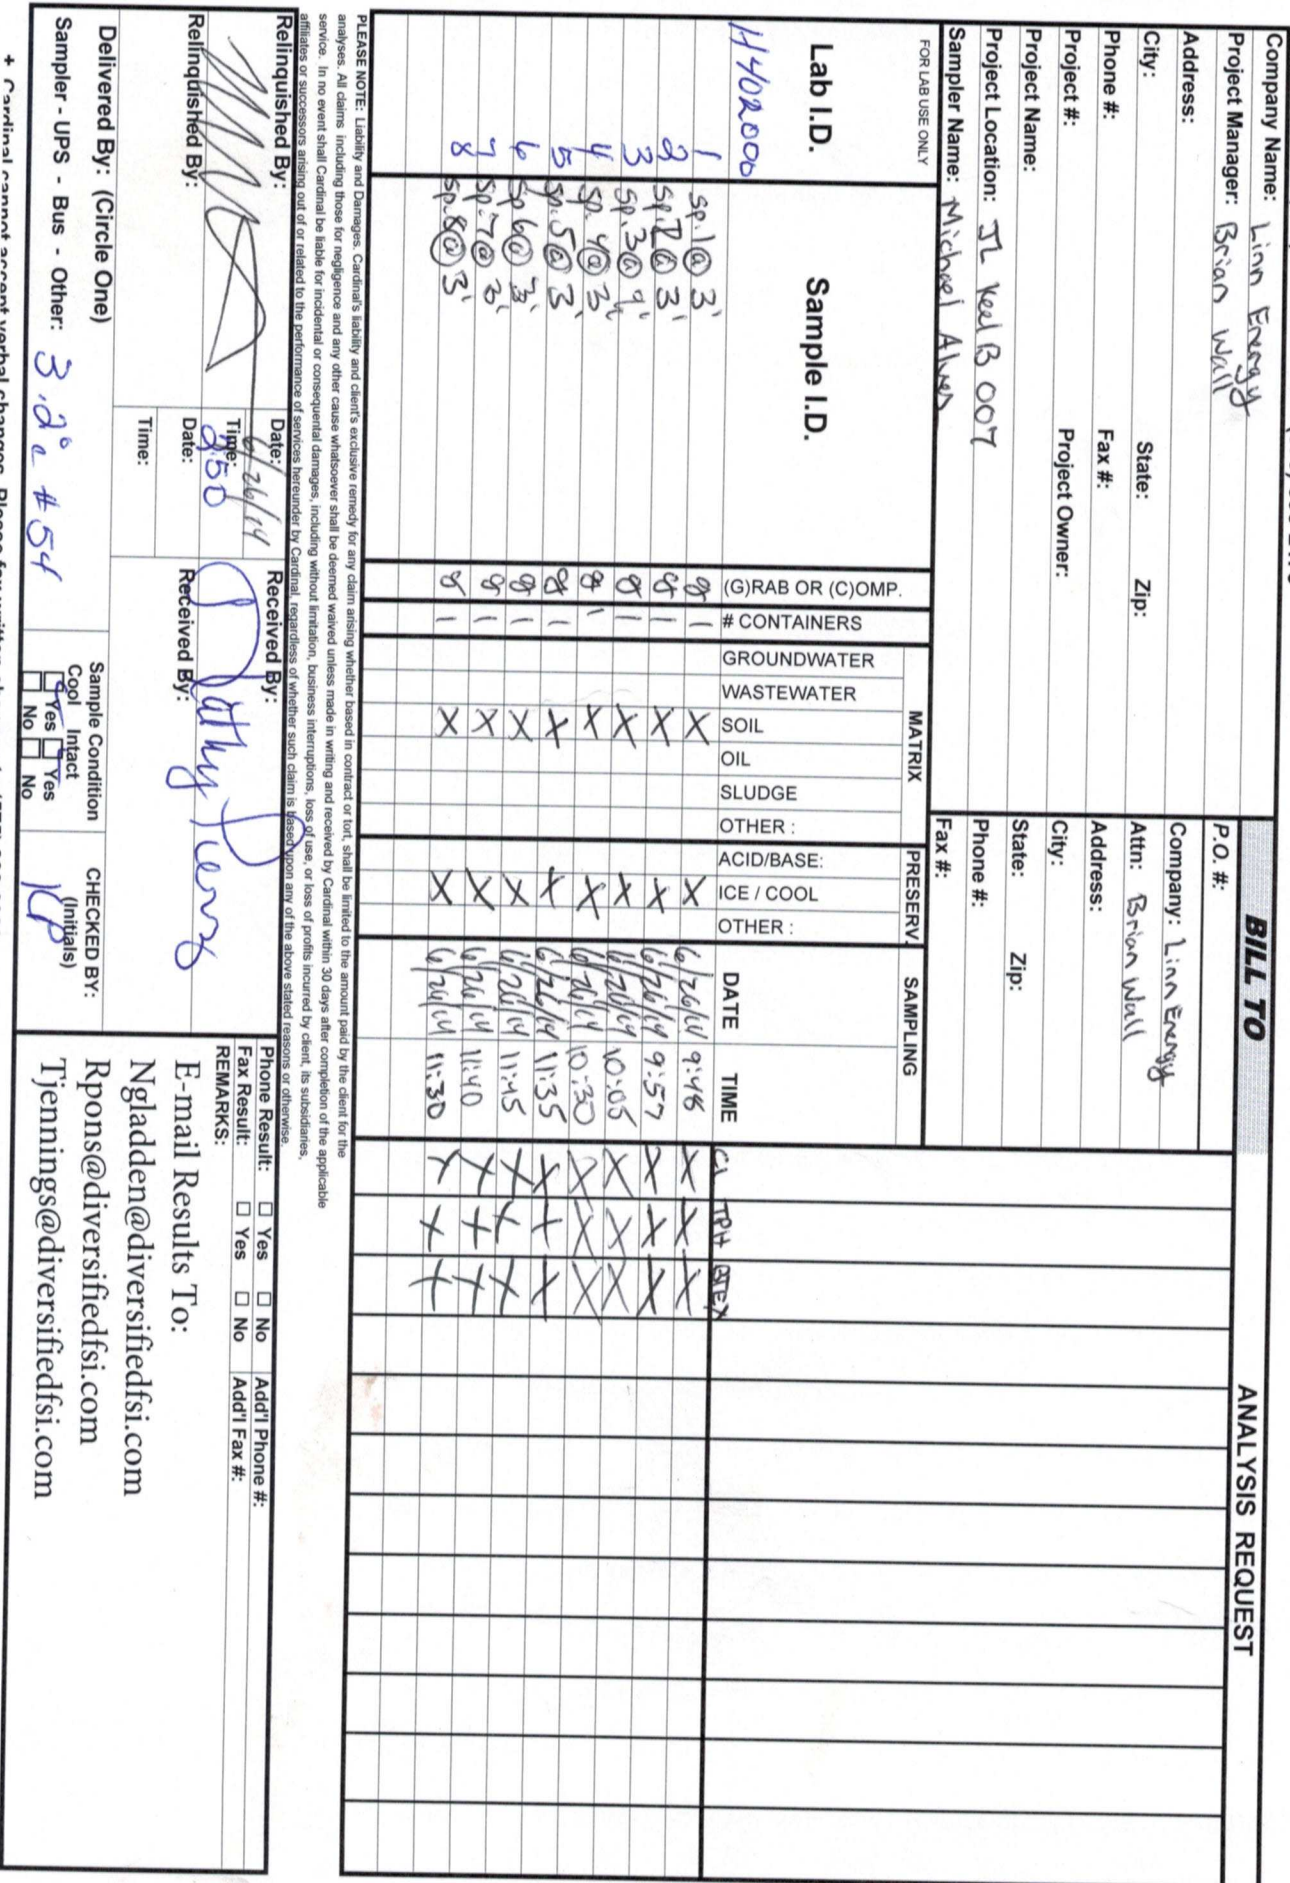 Company Name: Linn Energy
Project Manager: Brian Wall
Address:
City: State: Zip:
Phone #: Fax #:
Project #: Project Owner:
Project Name:
Project Location: JL Keel B 007
Sampler Name: Michael
BILL TO
P.O. #:
Company: Linn Energy
Attn: Brian Wall
Address:
City:
State: Zip:
Phone #:
Fax #:
ANALYSIS REQUEST
FOR LAB USE ONLY
Lab I.D.
Sample I.D.
(G)RAB OR (C)OMP.
# CONTAINERS
MATRIX
GROUNDWATER
WASTEWATER
SOIL
OIL
SLUDGE
OTHER :
PRESERV.
ACID/BASE:
ICE / COOL
OTHER :
SAMPLING
DATE TIME
Cl TPH BTEX
H402000
1 Sp.1 @ 3' g 1 X X 6/26/14 9:48 X X X
2 Sp.2 @ 3' g 1 X X 6/26/14 9:57 X X X
3 Sp.3 @ g 1 X X 6/26/14 10:05 X X X
4 Sp.4 @ 3' g 1 X X 6/26/14 10:30 X X X
5 Sp.5 @ 3' g 1 X X 6/26/14 11:35 X X X
6 Sp.6 @ 3' g 1 X X 6/26/14 11:45 X X X
7 Sp.7 @ 3' g 1 X X 6/26/14 11:40 X X X
8 Sp.8 @ 3' g 1 X X 6/26/14 11:30 X X X
PLEASE NOTE: Liability and Damages. Cardinal's liability and client's exclusive remedy for any claim arising whether based in contract or tort, shall be limited to the amount paid by the client for the
analyses. All claims including those for negligence and any other cause whatsoever shall be deemed waived unless made in writing and received by Cardinal within 30 days after completion of the applicable
service. In no event shall Cardinal be liable for incidental or consequental damages, including without limitation, business interruptions, loss of use, or loss of profits incurred by client, its subsidiaries,
affiliates or successors arising out of or related to the performance of services hereunder by Cardinal, regardless of whether such claim is based upon any of the above stated reasons or otherwise.
Relinquished By:
Date: 6/26/14
Time: 2:50
Received By:
Relinquished By:
Date:
Time:
Received By:
Phone Result: □ Yes □ No Add'l Phone #:
Fax Result: □ Yes □ No Add'l Fax #:
REMARKS:
E-mail Results To:
Ngladden@diversifiedfsi.com
Rpons@diversifiedfsi.com
Tjennings@diversifiedfsi.com
Delivered By: (Circle One)
Sampler - UPS - Bus - Other: 3.2°c #54
Sample Condition
Cool Intact
Yes Yes
No No
CHECKED BY:
(Initials)
KP